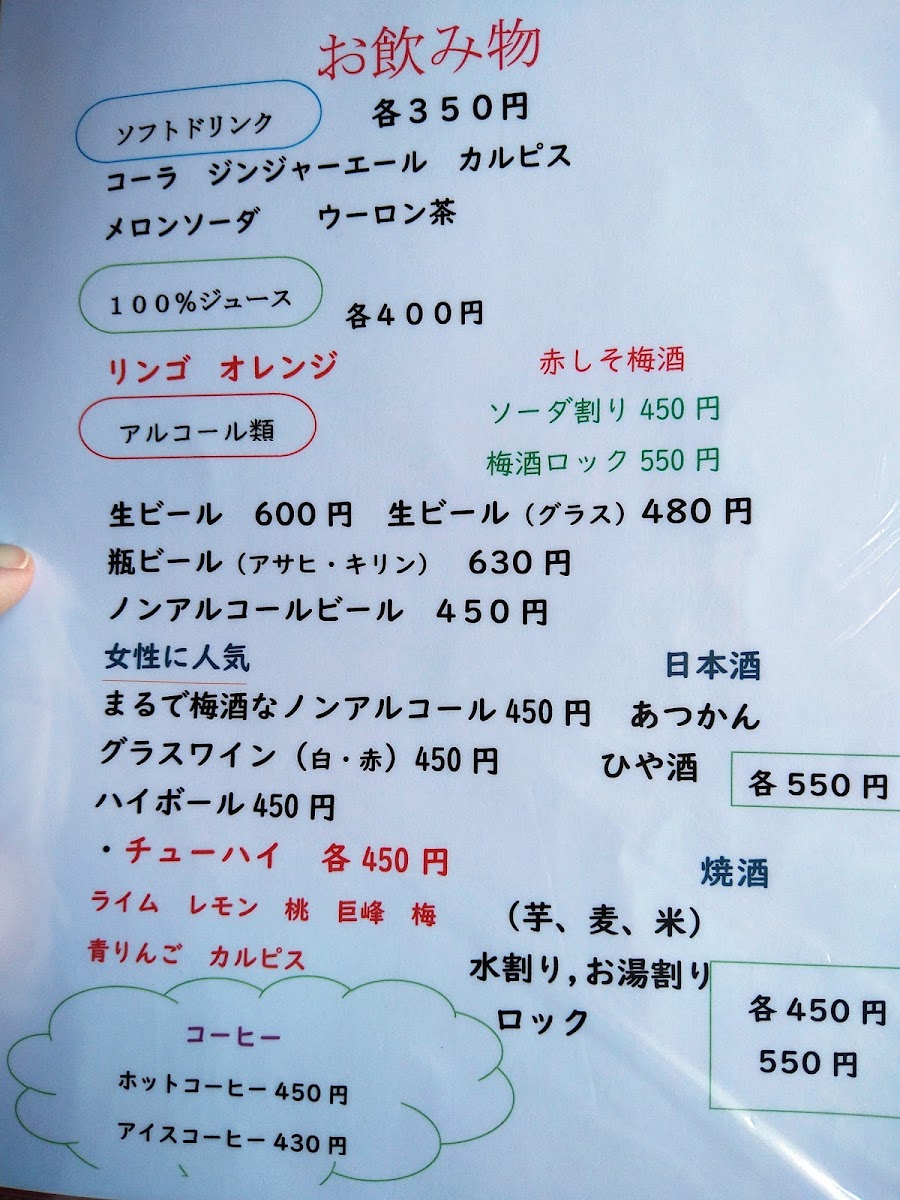 お飲み物
ソフトドリンク　各３５０円
コーラ　ジンジャーエール　カルピス
メロンソーダ　ウーロン茶
１００％ジュース　各４００円
リンゴ　オレンジ
赤しそ梅酒
ソーダ割り 450 円
梅酒ロック 550 円
アルコール類
生ビール　600 円　生ビール（グラス）480 円
瓶ビール（アサヒ・キリン）　630 円
ノンアルコールビール　450 円
女性に人気
まるで梅酒なノンアルコール 450 円
グラスワイン（白・赤）450 円
ハイボール 450 円
・チューハイ　各 450 円
ライム　レモン　桃　巨峰　梅
青りんご　カルピス
日本酒
あつかん
ひや酒
各 550 円
焼酒
（芋、麦、米）
水割り,お湯割り
各 450 円
ロック
550 円
コーヒー
ホットコーヒー 450 円
アイスコーヒー 430 円